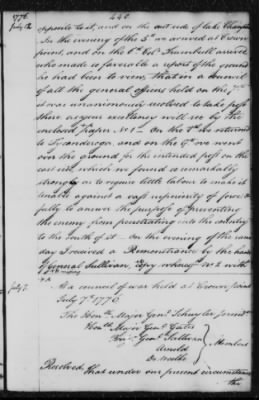 1776.
July 12.
240
opposite to it, and on the east side of lake Champlain
In the evening of the 5th we arrived at Crown
point, and on the 6th Col. Trumbull arrived
who made so favorable a report of the ground
he had been to view, that in a council
of all the general officers held on the 7th
it was unanimously resolved to take post
there as your excellency will see by the
enclosed paper No 1. On the 8th we returned
to Ticonderoga, and on the 9th we went
over the ground for the intended post on the
east side, which we found so remarkably
strong as to require little labour to make it
tenable against a vast superiority of force &
fully to answer the purpose of preventing
the enemy from penetrating into the country
to the South of it. On the evening of the same
day I received a Remonstrance by the hands
of General Sullivan, Copy whereof No 2 with
July 7.
At a council of war held at Crown point
July 7th 1776.
The Honble Major Genl Schuyler
Honble Major Genl Gates
Brigr Genl Sullivan
Arnold
De Woedtke
Members
Resolved, that under our present circumstances
the